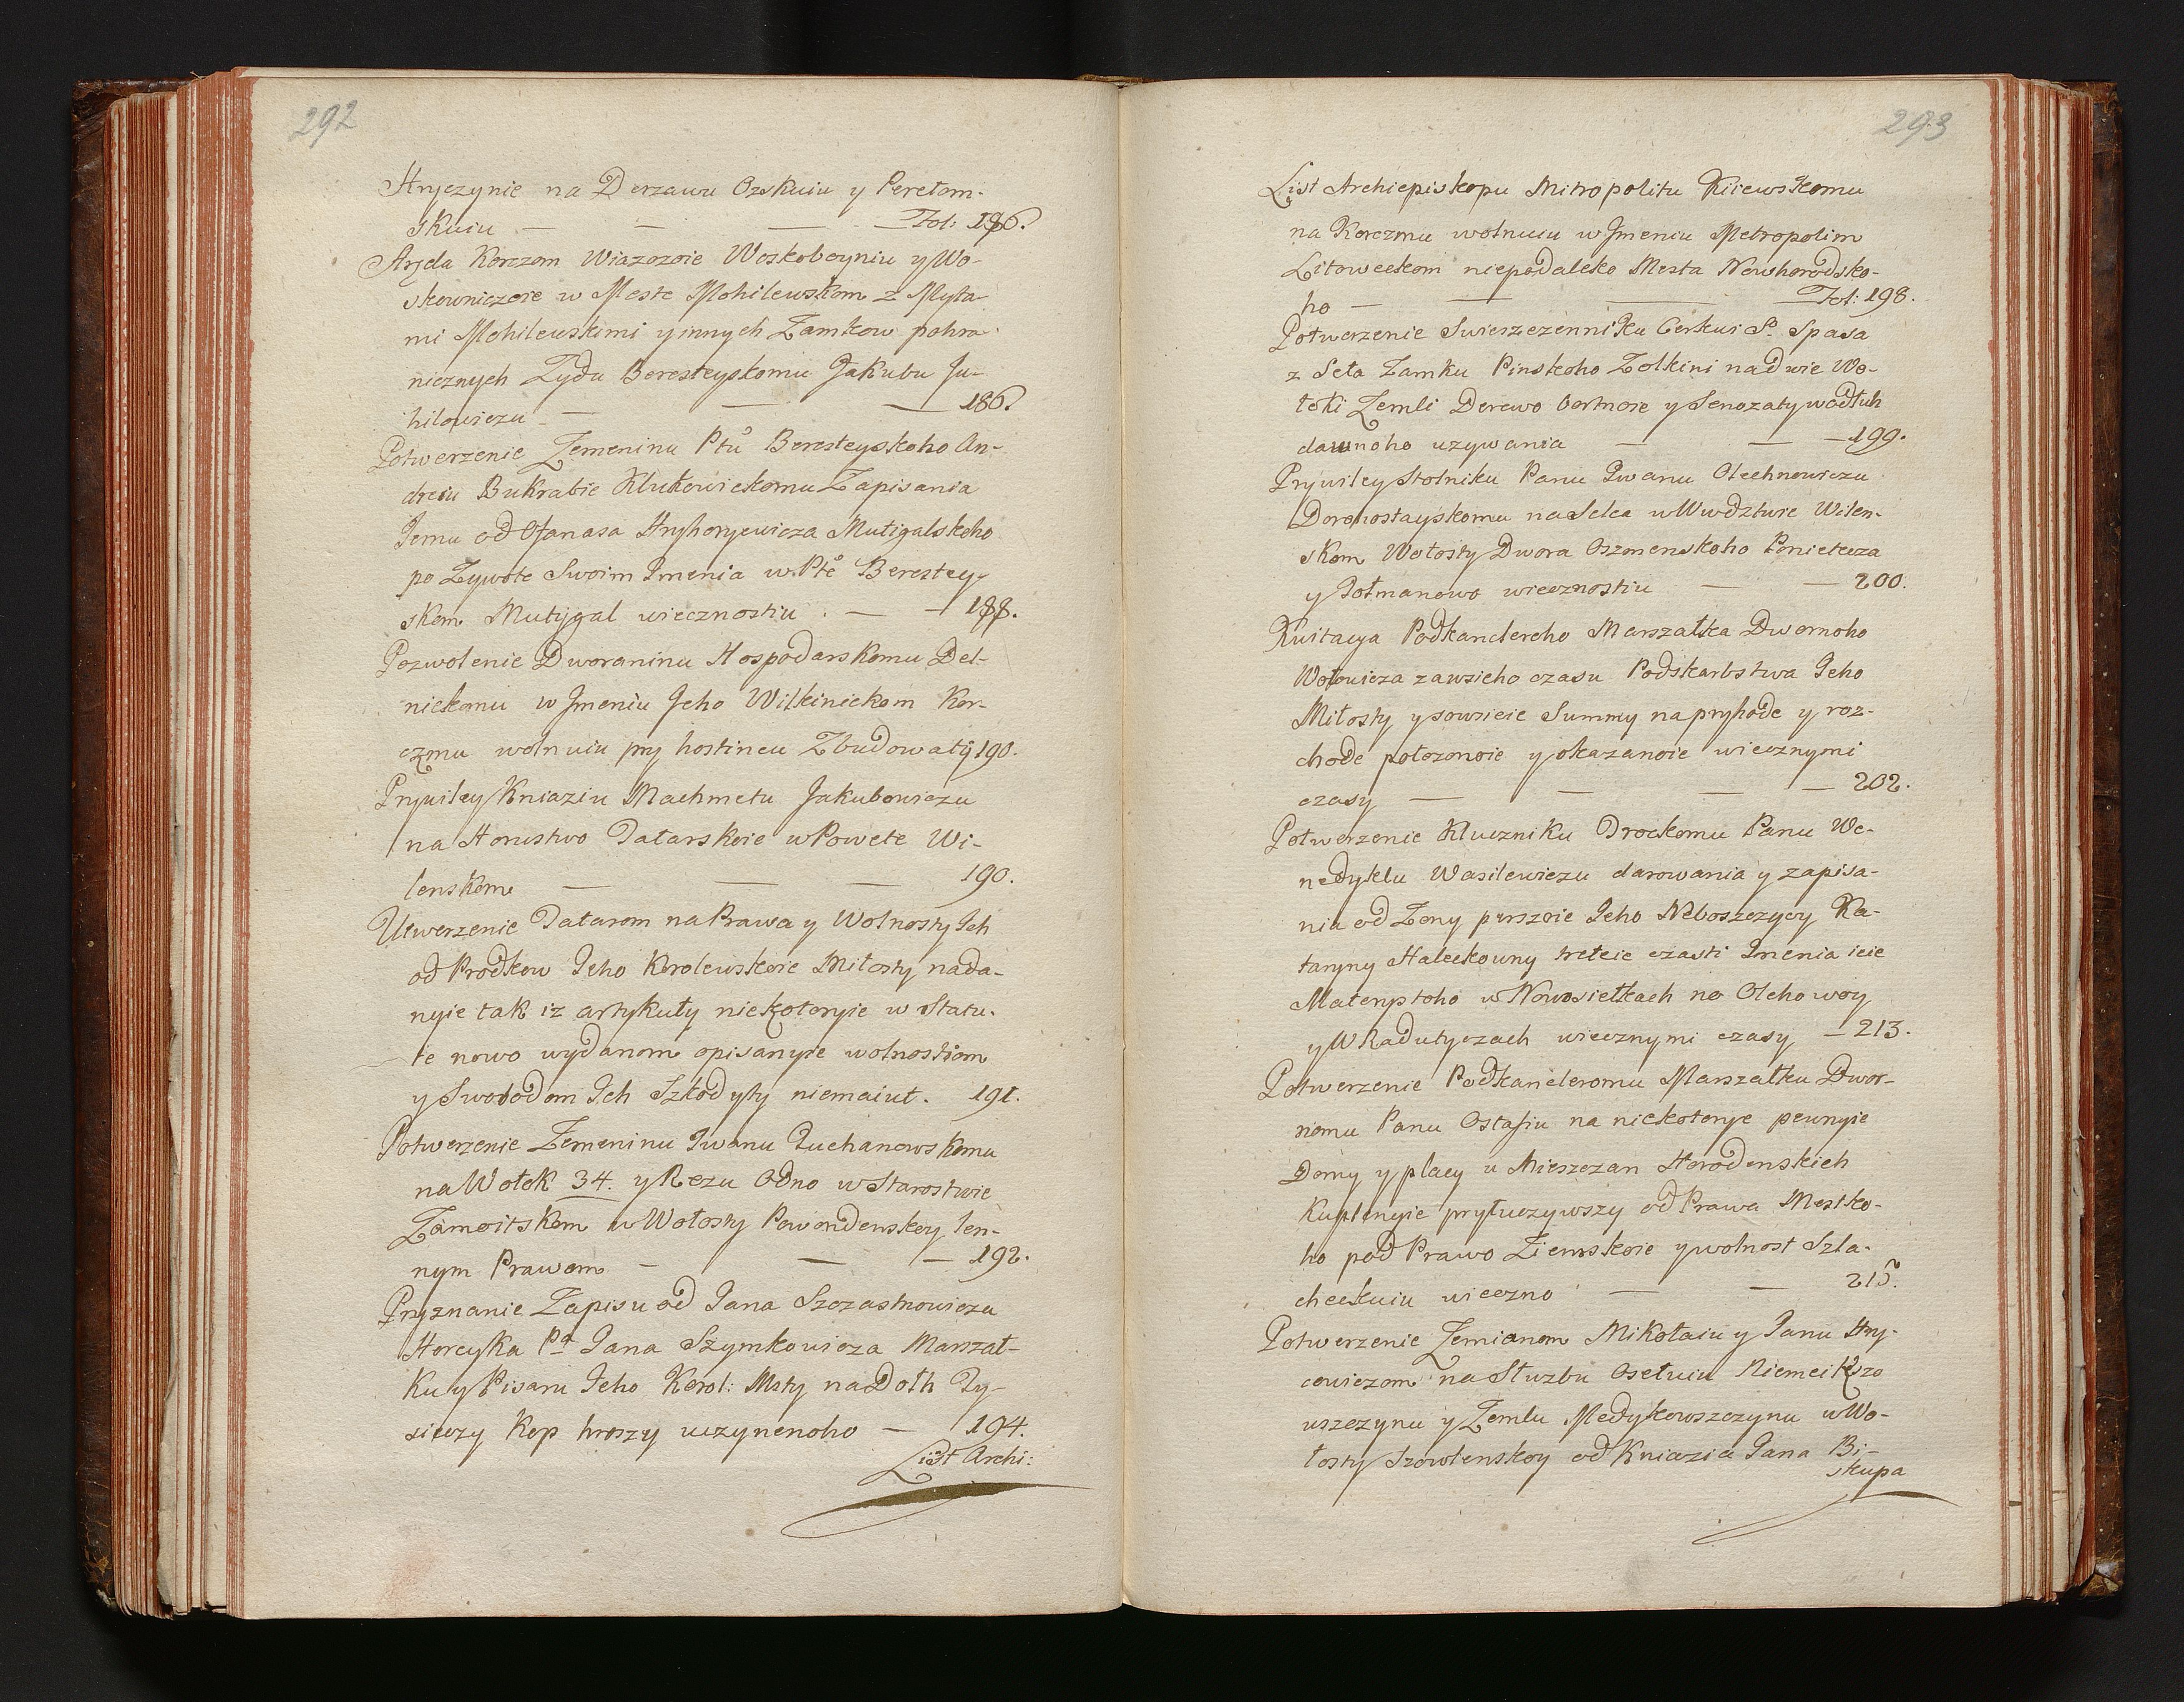 292
Hryczynie na Derzawu Ozskuiu y Perełom-
skuiu — — — Fol: 186.
Aręda Korczom Wiazozoie Woskoboyniu y Wo-
skowniczoie w Meste Mohilewskom z Myta-
mi Mohilewskimi y innych Zamkow pohra-
nicznych Zydu Beresteyskomu Jakubu Ju-
hilowiczu — — — 186.
Potwerzenie Zemeninu Ptu Beresteyskoho An-
dreiu Bukrabie Klukowickomu Zapisania
Jemu od Ofanasa Hryhoryewicza Mutigalskoho
po Zywote Swoim Imenia w Pte Berestey-
skom Mutygal wiecznostiu — — 188.
Pozwolenie Dworaninu Hospodarskomu Del-
nickomu w Jmeniu Jeho Wilkinickom Kor-
czmu wolnuiu pry hostincu Zbudowaty 190.
Prywiley Kniaziu Machmetu Jakubowiczu
na Horustwo Tatarskoie w Powete Wi-
lenskom — — — 190.
Utwerzenie Tatarom na Prawa y Wolnosty Ich
od Prodkow Jeho Korolewskoie Miłosty nada-
nyie tak iz artykuły niekotoryie w Statu-
te nowo wydanom opisanyie wolnostiom
y Swobodom Ich Szkodyty niemaiut. 191.
Potwerzenie Zemeninu Iwanu Puchanowskomu
na Wołok 34. y Rezu Odno w Starostwie
Zomoitskom w Wołosty Powondenskoy len-
nym Prawom — — — 192.
Pryznanie Zapisu od Jana Szczastnowicza
Horcyka Pa Jana Szymkowicza Marszał-
ku y Pisaru Jeho Korol: Msty na Dołh Ty-
siczy Kop hroszy uczynenoho — 194.
List Archi:
293
List Archiepiskopu Mitropolitu Kiiewskomu
na Korczmu wolnuiu w Jmeniu Metropolim
Litowckom niepodaleko Mesta Nowhorodsko-
ho — — — Fol: 198.
Potwerzenie Swieszczenniku Cerkwi So Spasa
z Seła Zamku Pinskoho Zolkini na dwie Wo-
łoki Zemli Derewo bortnoie y Senozaty wodłuh
dawnoho uzywania — — — 199.
Prywiley Stolniku Panu Iwanu Olechnowiczu
Dorohostayskomu na Selca w Wwdztwie Wilen-
skom Wołosty Dwora Oszmenskoho
y Tołmanowo wiecznostiu — — 200.
Kwitacya Podkanclereho Marszałka Dwornoho
Wołowicza zawsieho czasu Podskarbstwa Jeho
Miłosty y sowsieie Summy na pryhode y roz-
chode połozonoie y okazanoie wiecznymi
czasy — — — — 202.
Potwerzenie Kluczniku Trockomu Panu We-
nedyktu Wasilewiczu darowania y zapisa-
nia od Zony perszoie Jeho Neboszczycy Ka-
taryny Haleckowny treteie czasti Imenia ieie
Materystoho w Nowosiełkach na Olchowoy
y w Radutyczach wiecznymi czasy — 213.
Potwerzenie Podkancleromu Marszałku Dwor-
nomu Panu Ostafiu na niekotorye pewnyie
Domy y placy u Mieszczan Horodenskich
Kuplenyie prytuczywszy od Prawa Mestko-
ho pod Prawo Ziemskoie y wolnost Szla-
checkuiu wieczno — — 215.
Potwerzenie Zemianom Mikołaiu y Janu Hry-
cewiczom na Słuzbu Osełuiu Niemeikszo
wszczynu y Zemlu Medykowszczynu w Wo-
łosty Szowlenskoy od Kniazia Jana Bi-
skupa